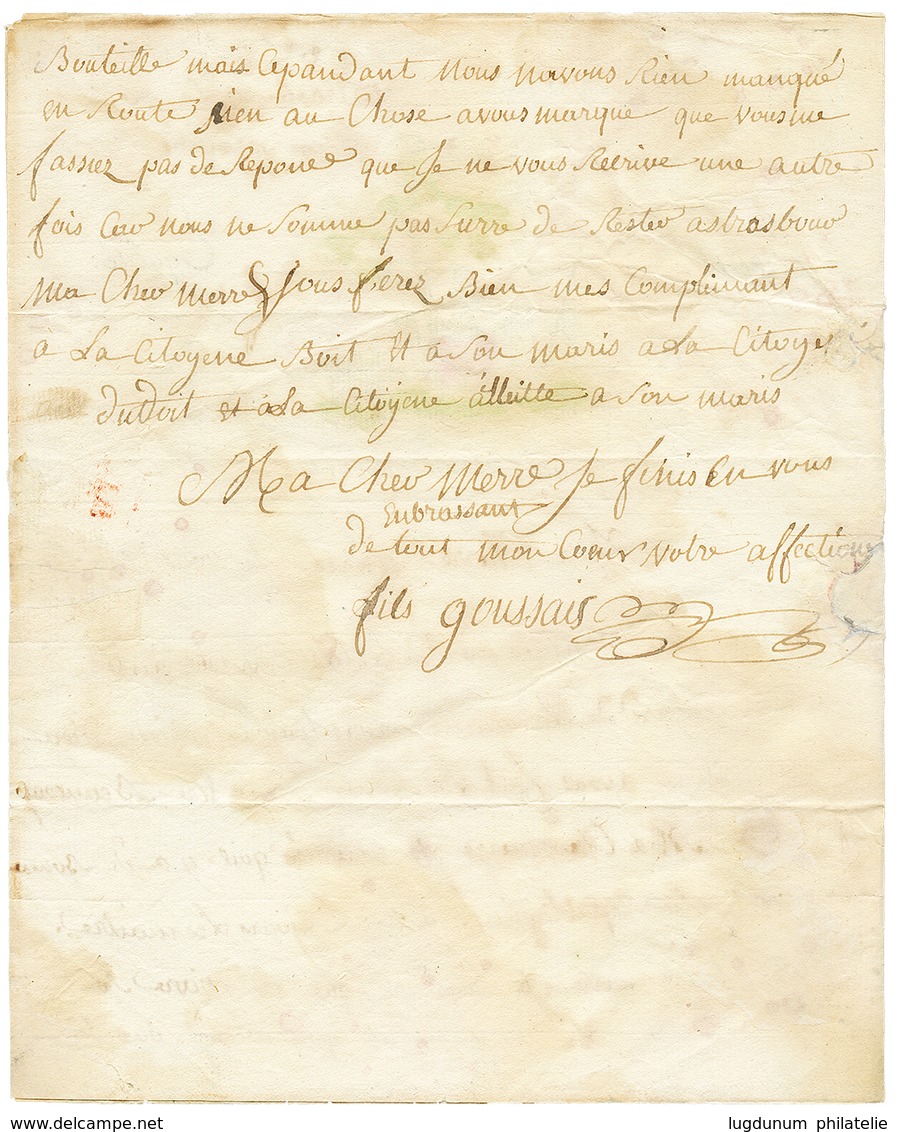 Bouteille mais Cepandant nous navons Rien manqué
en Route Rien au Chose avous marque que vous me
fassiez pas de Reponce que Je ne vous Recrive une autre
fois Car nous ne Somme pas Surre de Rester astrasbour
Ma Cher Merre vous ferez Bien mes Complimant
a La Citoyene Boit Et a Son maris a La Citoye
dutoit et a La Citoyene álleitte a Son maris
Ma Cher Merre Je finis En vous
Enbrassant
de tout mon Coeur votre affection
fils goussais
www.delcampe.net
lugdunum philatelie